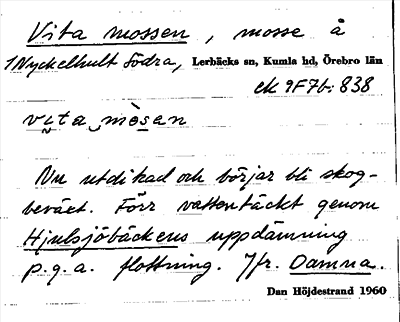 Vita mossen, mosse å
1 Nyckelhult Södra, Lerbäcks sn, Kumla hd, Örebro län
ek 9F7b: 838
vi̮ta‿mòsan
Nu utdikad och börjar bli skog-
beväxt. Förr vattentäckt genom
Hjulsjöbäckens uppdämning
p.g.a. flottning. Jfr. Damna.
Dan Höjdestrand 1960